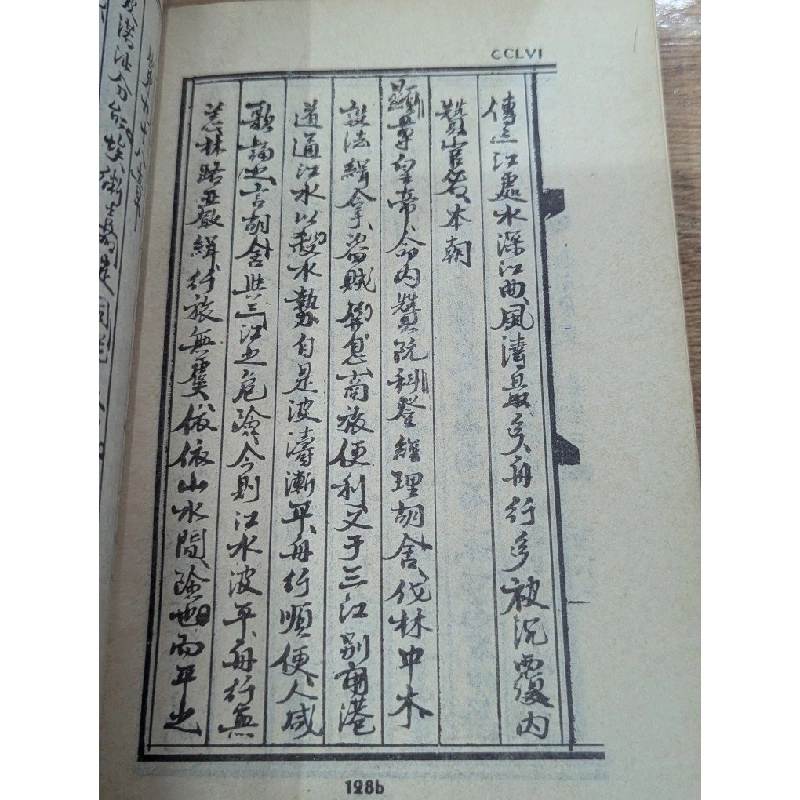 CCLVI
傳三江處水深江曲風濤最多舟行多被沉覆內
贊官名本朝
顯尊皇帝命內贊阮科登經理胡舍伐林中木
設法緝拿盜賊寧息商旅便利又于三江別開港
道通江水以殺水勢自是波濤漸平舟行順便人咸
歌謠之言胡舍與三江之危險今則江水波平舟行無
恙林路嚴緝行旅無虞依依山水間險地而平之
128b